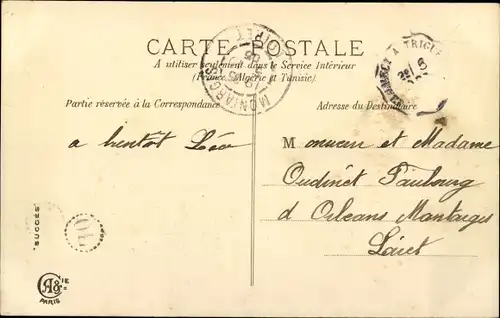 CARTE POSTALE
A utiliser seulement dans le Service Intérieur
(France, Algérie et Tunisie).
MONTARGIS
CLAMECY A TRIGUÈRES
Partie réservée à la Correspondance
Adresse du Destinataire
a bientot Léa
Monsieur et Madame
Oudinet Faubourg
d Orleans Montargis
Loiret
"SUCCÈS"
CA& CIE
PARIS